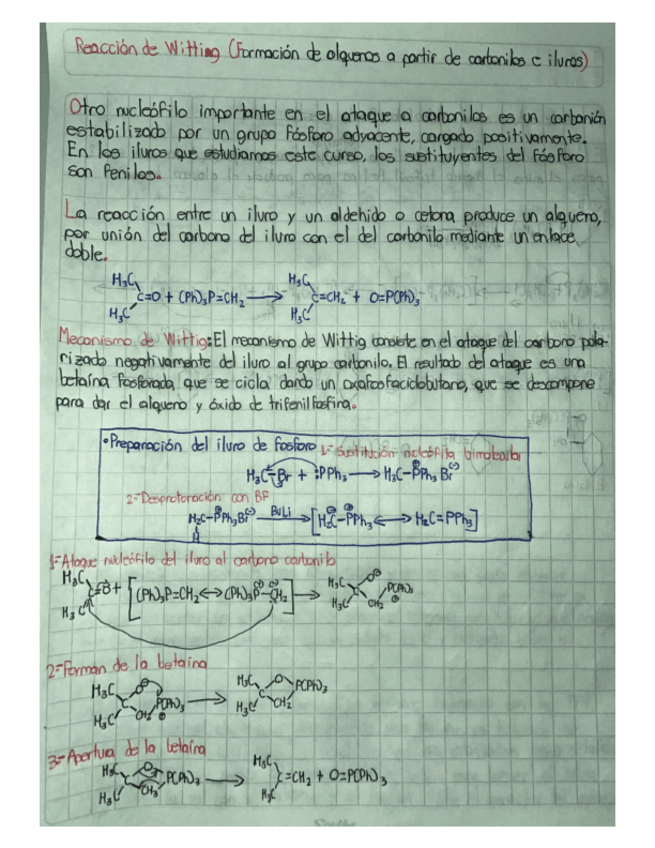 Reacción de Witting (Formación de alquenos a partir de carbonilos e iluros)
Otro nucleófilo importante en el ataque a carbonilos es un carbanión
estabilizado por un grupo fósforo adyacente, cargado positivamente.
En los iluros que estudiamos este curso, los sustituyentes del fósforo
son fenilos.
La reacción entre un iluro y un aldehido o cetona produce un alqueno,
por unión del carbono del iluro con el del carbonilo mediante un enlace
doble.
H₃C H₃C
C=O + (Ph)₃P=CH₂ → C=CH₂ + O=P(Ph)₃
H₃C H₃C
Mecanismo de Wittig: El mecanismo de Wittig consiste en el ataque del carbono pola-
rizado negativamente del iluro al grupo carbonilo. El resultado del ataque es una
betaína fosforada, que se cicla dando un oxafosfaciclobutano, que se descompone
para dar el alqueno y óxido de trifenilfosfina.
• Preparación del iluro de fosforo 1- Sustitución nucleófila bimolecular
H₃C-Br + :PPh₃ → H₃C-PPh₃ Br
2- Desprotonación con BF
H₂C-PPh₃Br BuLi → [H₂C-PPh₃ ↔ H₂C=PPh₃]
H
1- Ataque nucleófilo del iluro al carbono carbonilo
H₃C H₃C O
C=O + [(Ph)₃P=CH₂ ↔ (Ph)₃P-CH₂] → C P(Ph)₃
H₃C H₃C CH₂
2- Forman de la betaina
H₃C O H₃C O
C P(Ph)₃ → C P(Ph)₃
H₃C CH₂ H₃C CH₂
3- Apertura de la betaína
H₃C O H₃C
C P(Ph)₃ → C=CH₂ + O=P(Ph)₃
H₃C CH₂ H₃C